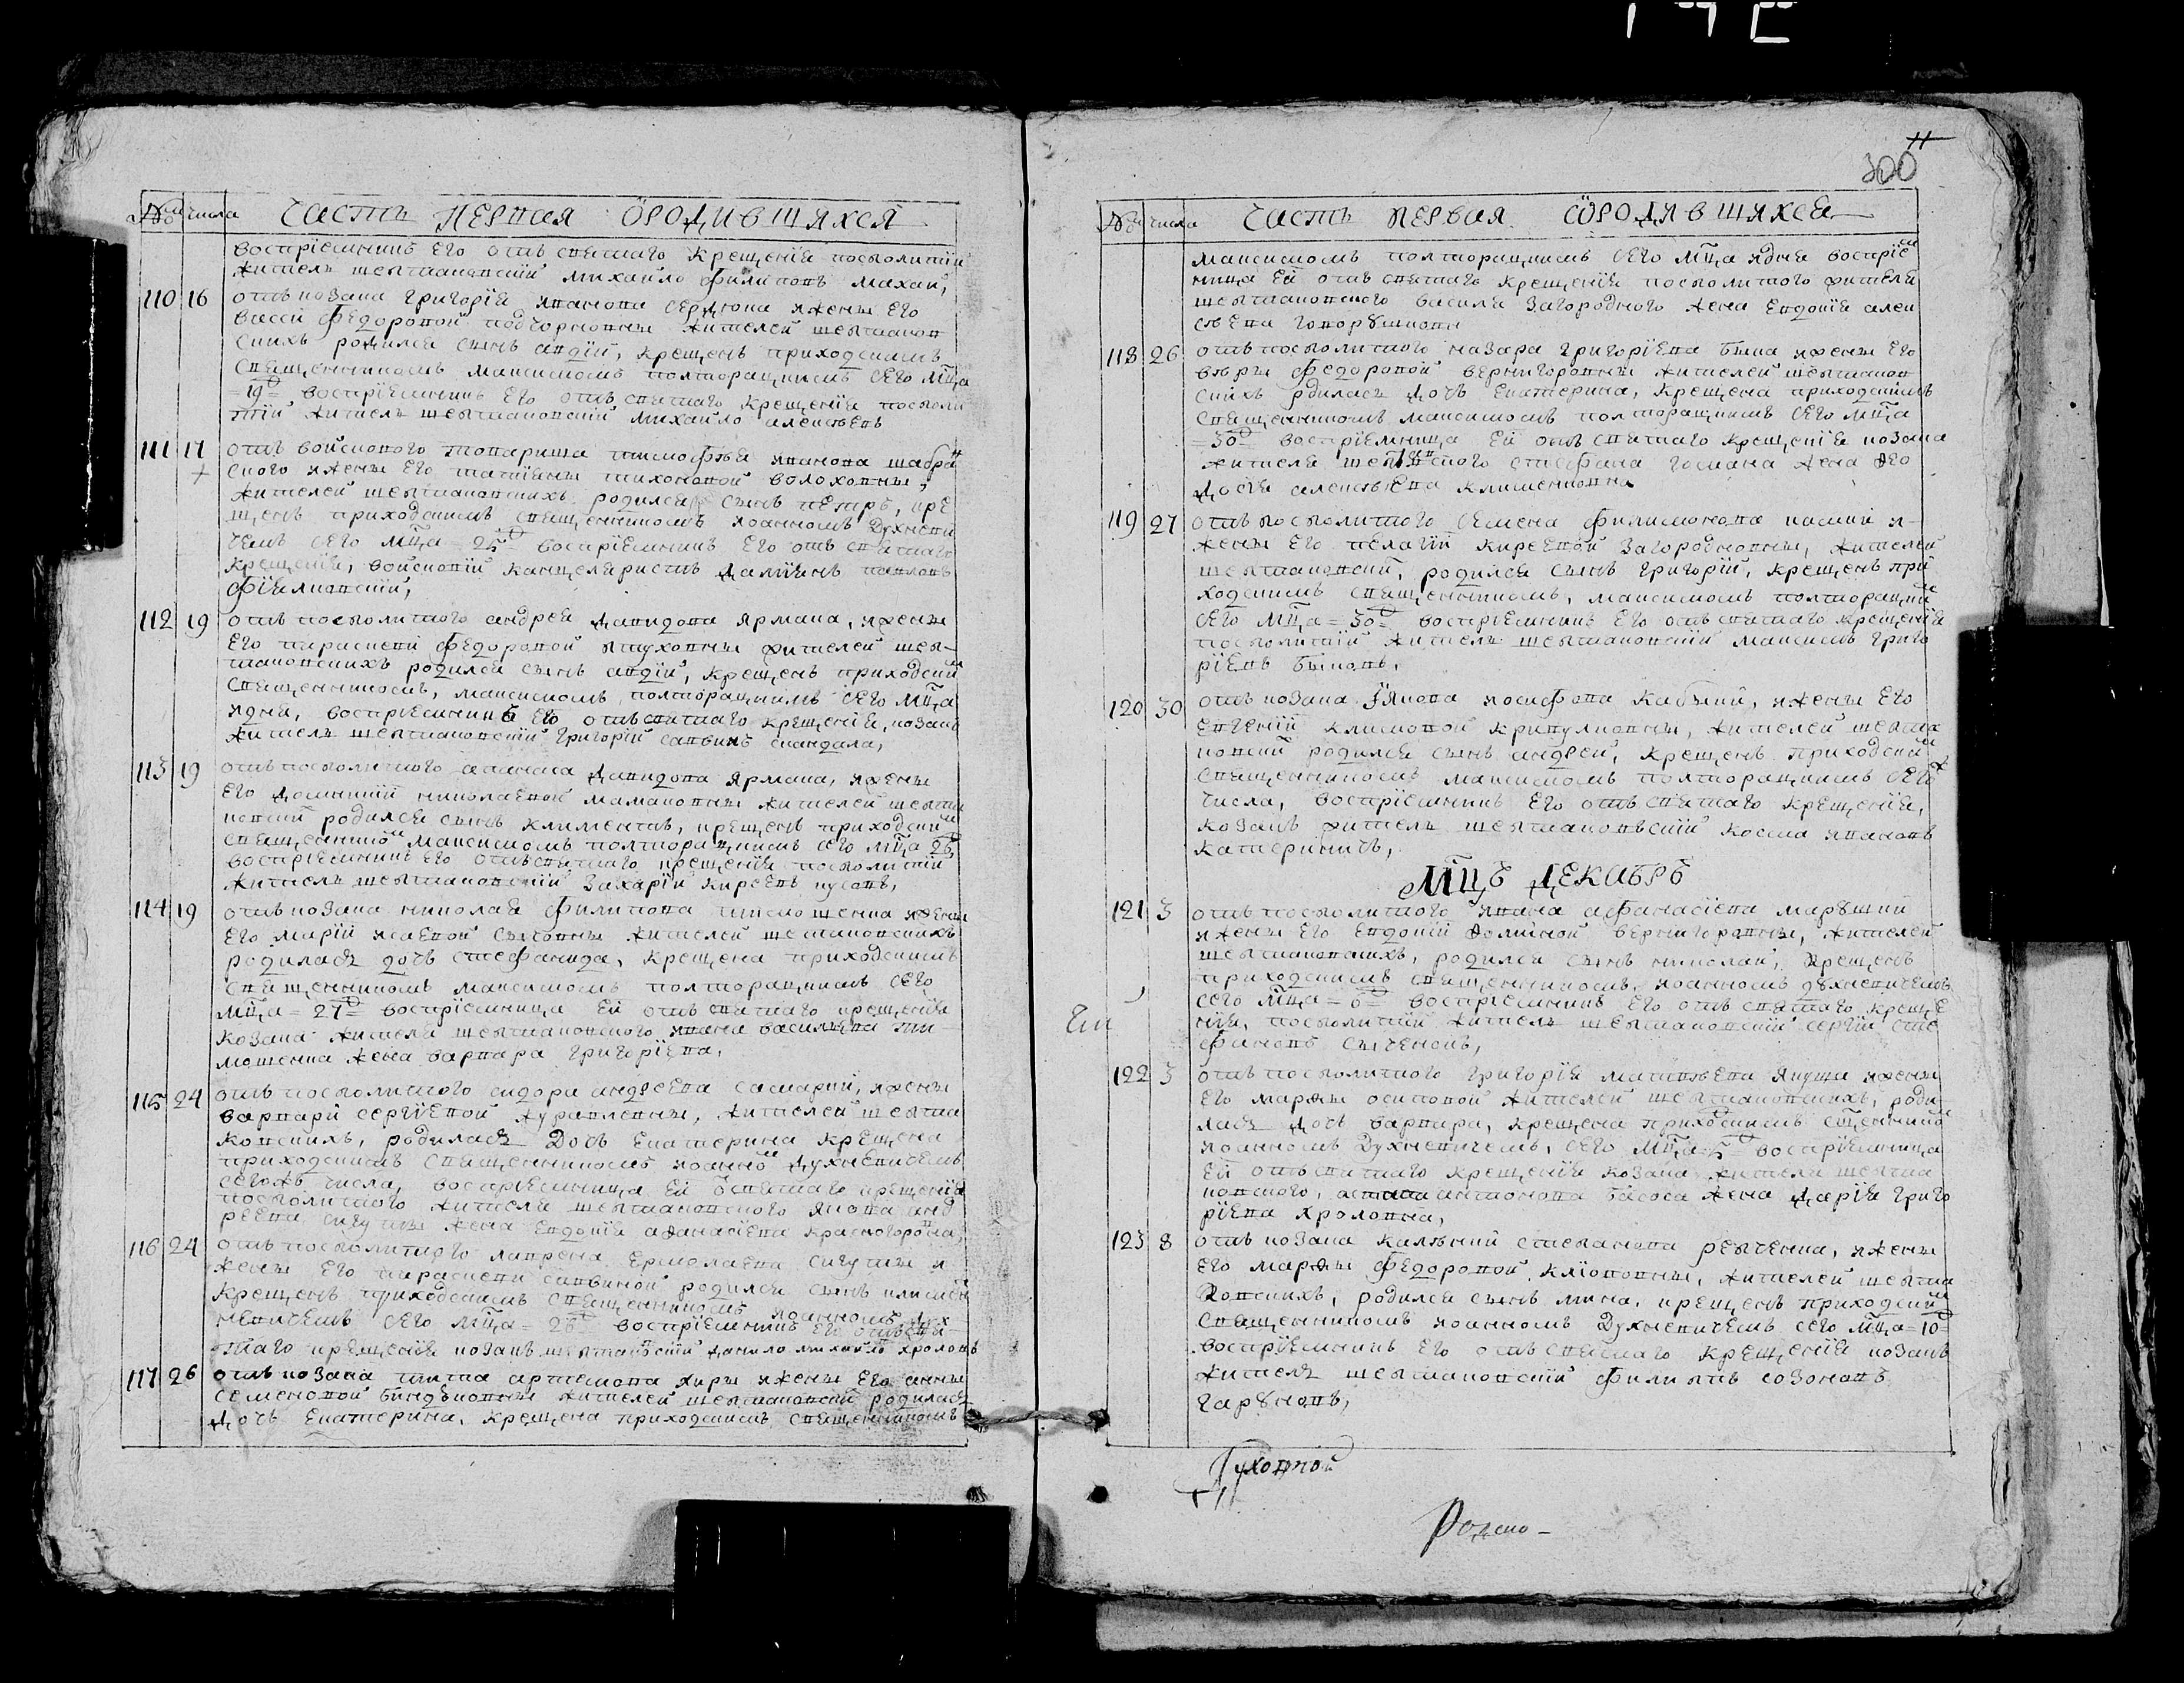 № числа Часть первая о родившихся
восприемникъ его отъ святаго крещенїя посполитїй
житель шептаковскїй михайло филиповъ махай,
110 16 отъ козака григорїя иванова сердюка и жены его
васси федоровой подчорновны жителей шептаков
скихъ родился сынъ авдїй, крещенъ приходскимъ
священникомъ максимомъ полторацкимъ сего мц҃а
=19= восприемникъ его отъ святаго крещенїя посполи
тїй житель шептаковскїй михайло алексѣевъ
111 17 отъ войскового товариша тимофѣя иванова шабра
ского и жены его татїаны тихоновой волоховны,
жителей шептаковскихъ родился сынъ петръ, кре
щенъ приходскимъ священникомъ иоанномъ духневи
чемъ сего мц҃а =25= восприемникъ его отъ святаго
крещенїя, войсковїй канцеляристъ павловъ
112 19 отъ посполитого андрея давидова ярмака, и жены
его параскеви федоровой жителей шеп-
таковскихъ родился сынъ авдїй, крещенъ приходским
священникомъ, максимомъ полторацкимъ сего мц҃а
и дня, восприемникъ его отъ святаго крещенїя, козакъ
житель шептаковскїй григорїй савинъ скандала,
113 19 отъ посполитого давидова ярмака, и жены
его домникїй николаевой мамаковны жителей шепта
ковских родился сынъ климентъ, крещенъ приходским
священником максимомъ полторацкимъ сего мц҃а 26
восприемникъ его отъ святаго крещенїя посполитїй
житель шептаковскїй захарїй киреевъ кусовъ,
114 19 отъ козака николая филипова тимошенка и жены
его марїй исаевой сычовны жителей шептаковскихъ
родилась дочь стефанида, крещена приходскимъ
священникомъ максимомъ полторацкимъ сего
мц҃а =27= восприемница ей отъ святаго крещенїя
козака жителя шептаковского ивана василїева ти-
мошенка жена варвара григорїева,
115 24 отъ посполитого сидора андреева и жены
варвари сергїевой журавлевны, жителей шепта
ковскихъ, родилась дочь екатерина крещена
приходскимъ священникомъ иоанном духневичемъ
сегожъ числа, восприемница ей о святаго крещенїя
посполитого жителя шептаковского якова анд
реева сигути жена евдокїя афанасїева
116 24 отъ посполитого лаврена ермолаева сигути и
жены его параскеви савиной родился сынъ
крещенъ приходскимъ священникомъ иоанномъ дух
невичемъ сего мц҃а =26= восприемникъ его отъ свя
таго крещенїя козакъ михайло хроловъ
117 26 отъ козака тита артемова хиры и жены его анны
семеновой жителей шептаковских родилась
дочь екатерина, крещена приходскимъ священникомъ

300
№ числа Часть первая о родившихся
максимомъ полторацкимъ сего мц҃а и дня восприем
ница ей отъ святаго крещенїя посполитого жителя
шептаковского василя загородного жена евдокїя алек
сѣева
118 26 отъ посполитого назара григорїева быка и жены его
вѣры федоровой вернигоровны жителей шептаков
скихъ рдилась дочь екатерина, крещена приходскимъ
священникомъ максимомъ полторацкимъ сего мц҃а
=30= восприемница ей отъ святаго крещенїя козака
жителя стефана жена его
алексѣева клименковна
119 27 отъ посполитого семена филимонова и
жены его пелагїй киреевой загородновны, жителей
шептаковских, родился сынъ григорїй, крещенъ при
ходскимъ священникомъ, максимомъ полторацким
сего мц҃а =30= восприемникъ его отъ святаго крещенїя
посполитїй житель шептаковскїй максимъ григо
рїевъ быковъ.
120 30 отъ козака якова иосифова и жены его
евгенїй климовой жителей шепта
ковских родился сынъ андрей, крещенъ приходским
священникомъ максимомъ полторацкимъ сего ж
числа, восприемникъ его отъ святаго крещенїя,
козакъ житель шептаковскїй косма ивановъ
катериничъ,
Мц҃ъ декабрь
121 3 отъ посполитого ивана афанасїева
и жены его евдокїй вернигоровны, жителей
шептаковскихъ, родился сынъ николай, крещенъ
приходскимъ священникомъ, иоанномъ духневичемъ
сего мц҃а =6= восприемникъ его отъ святаго креще
нїя, посполитїй житель шептаковскїй сергїй сте
фановъ
122 3 отъ посполитого григорїя матвѣева и жены
его марфы осиповой жителей шептаковскихъ, роди
лась дочь варвара, крещена приходскимъ
иоанномъ духневичемъ, сего мц҃а =5= восприемница
ей отъ святаго крещенїя козака жителя шепта
ковского, антонова жена дарїя григо
рїева хроловна,
123 8 отъ козака степанова и жены
его марфы федоровой жителей шепта
ковскихъ, родился сынъ мина, крещенъ приходским
священникомъ иоанномъ духневичемъ сего мц҃а =10=
восприемникъ его отъ святаго крещенїя козакъ
житель шептаковскїй филипъ созоновъ